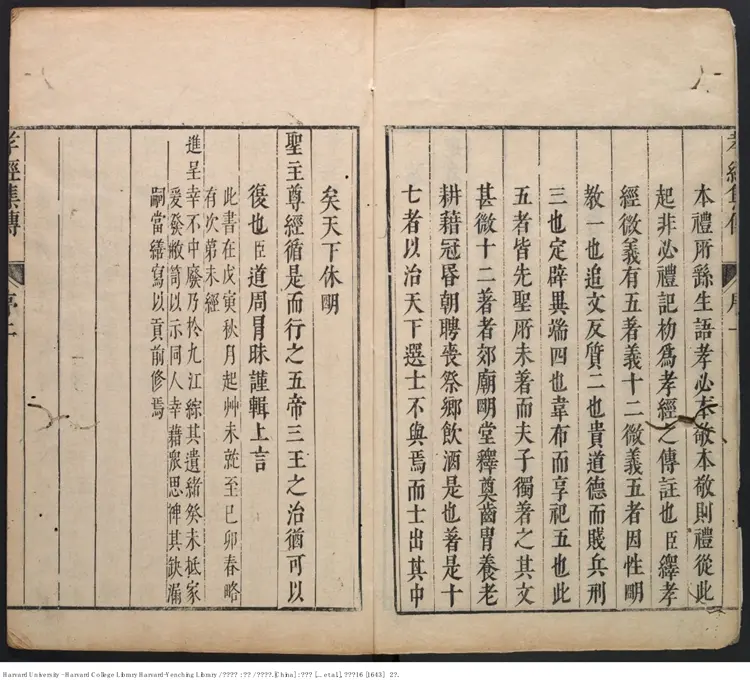 本禮所繇生語孝必本敬本敬則禮從此
起非必禮記初爲孝經之傳註也臣繹孝
經微義有五著義十二微義五者因性明
教一也追文反質二也貴道德而賤兵刑
三也定辟異端四也韋布而享祀五也此
五者皆先聖所未著而夫子獨著之其文
甚微十二著者郊廟明堂釋奠齒胄養老
耕藉冠昏朝聘喪祭鄉飲酒是也著是十
七者以治天下選士不與焉而士出其中
矣天下休明
聖主尊經循是而行之五帝三王之治猶可以
復也臣道周冒昧謹輯上言
此書在戊寅秋月起艸未就至己卯春略
有次第未經
進呈幸不中廢乃於九江綜其遺緒癸未抵家
爰發敝笥以示同人幸藉眾思裨其缺漏
嗣當繕寫以貢前修焉
孝經集傳 序二
孝經集傳 序一
Harvard University - Harvard College Library Harvard-Yenching Library / ???? : ?? / ????. [China] : ??? [... et al.], ???16 [1643] 2?.